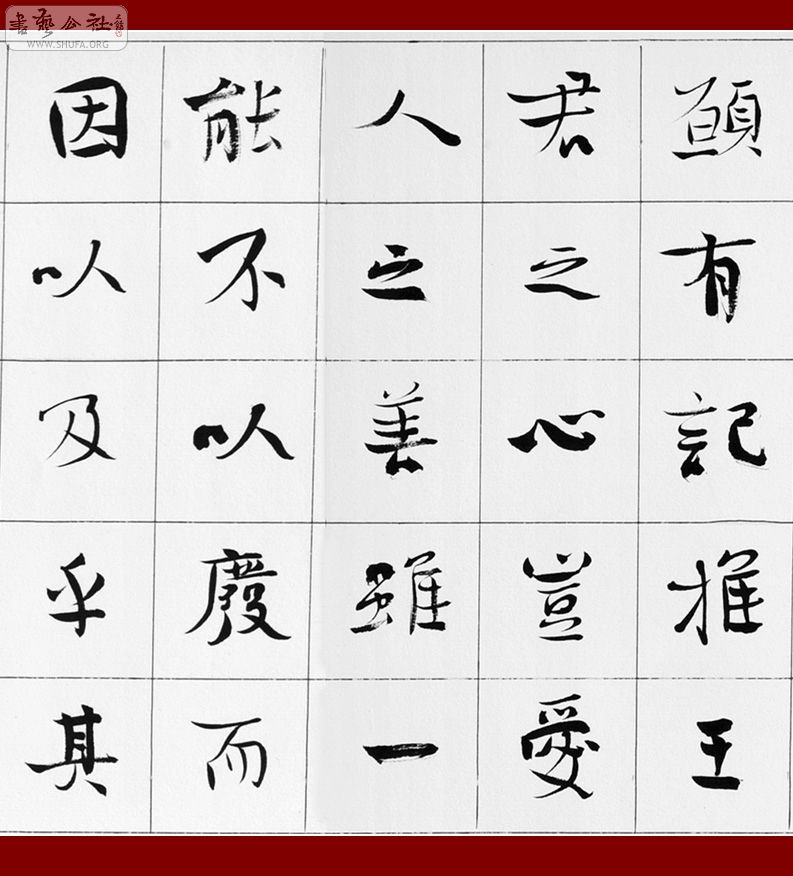 書藝公社
WWW.SHUFA.ORG
願有記推王
君之心豈愛
人之善雖一
能不以廢而
因以及乎其